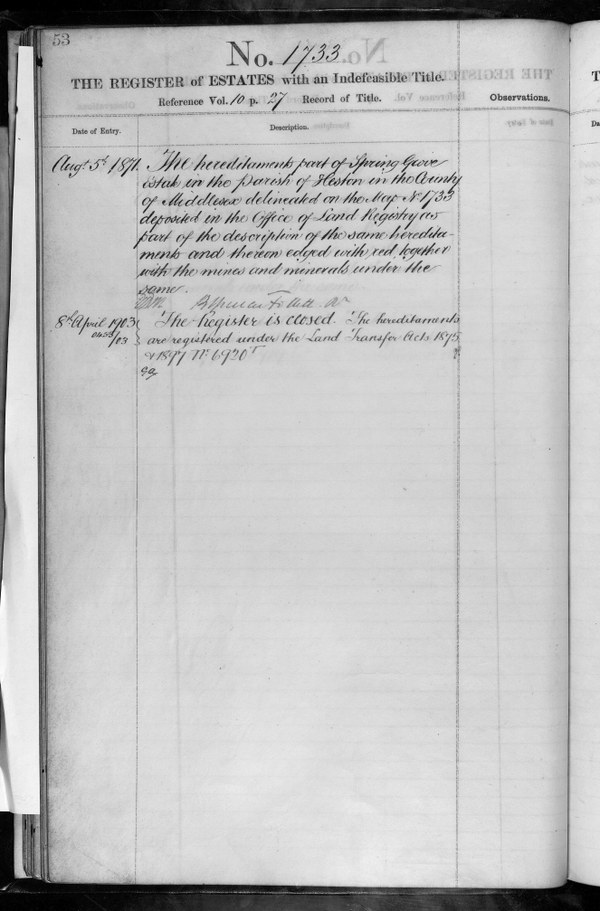 53
No. 1733
THE REGISTER of ESTATES with an Indefeasible Title.
Reference Vol. 10 p. 27 Record of Title.
Observations.
Date of Entry.
Description.
Augt 5th 1871. The hereditaments part of Spring Grove
Estate in the Parish of Heston in the County
of Middlesex delineated on the Map No. 1733
deposited in the Office of Land Registry as
part of the description of the same heredita-
ments and thereon edged with red together
with the mines and minerals under the
same.
8th April 1903 The Register is closed. The hereditaments
/03 are registered under the Land Transfer Acts 1875
& 1897 No. 6920